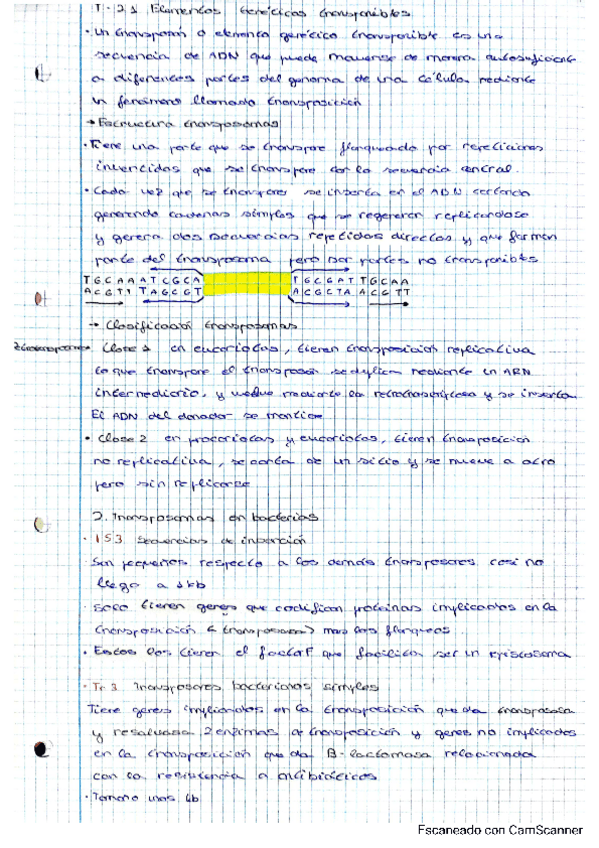 T-21 Elementos Genéticos transponibles
· Un transposón o elemento genético transponible es una
secuencia de ADN que puede moverse de manera autosuficiente
a diferentes partes del genoma de una célula mediante
un fenómeno llamado transposición
→ Estructura transposomas
· Tiene una parte que se transpore flanqueada por repeticiones
invertidas que se transpore con la secuencia central.
· Cada vez que se transpore se inserta en el ADN cortando
generando cadenas simples que se regeneran replicandose
y genera dos secuencias repetidas directas y que forman
parte del transposoma pero son partes no transponibles
TGCAAATCGCA TGCGATTGCAA
ACGTTTAGCGT ACGCTAACGTT
→ Clasificación transposomas
· Clase 1 en eucariotas, tienen transposición replicativa
lo que transpore el transposón se duplica mediante un ARN
intermediario, y vuelve mediante la retrotranscriptasa y se inserta
El ADN del donador se mantiene
· Clase 2 en procariotas y eucariotas, tienen transposición
no replicativa, se corta de un sitio y se mueve a otro
pero sin replicarse
2. Transposomas en bacterias
· IS3 Secuencias de inserción
Son pequeños respecto a los demás transposores casi no
llega a 1kb
· Solo tienen genes que codifican proteínas implicadas en la
transposición (transposasa) mas los flanqueos.
· Estos los tienen el factor F que facilita ser un episosoma
· Tn3 Transposores bacterianos simples
Tiene genes implicados en la transposición que da transposasa
y resolvasa 2 enzimas de transposición y genes no implicados
en la transposición que da B-lactamasa relacionada
con la resistencia a antibióticos
· Tamaño unas kb
Escaneado con CamScanner